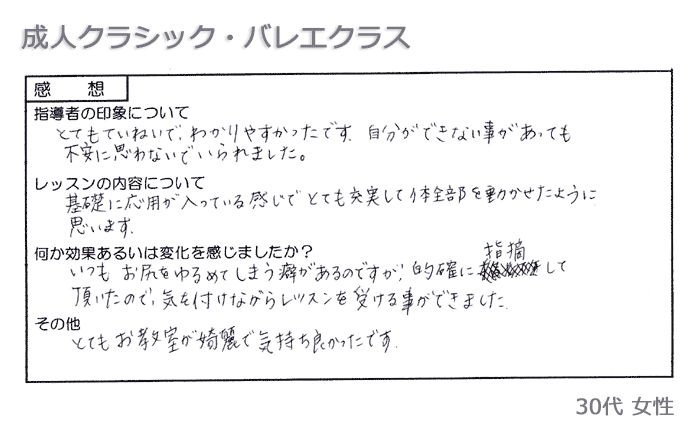 成人クラシック・バレエクラス
感 想
指導者の印象について
とてもていねいで、わかりやすかったです。自分ができない事があっても
不安に思わないでいられました。
レッスンの内容について
基礎に応用が入っている感じで とても充実して体全部を動かせたように
思います。
何か効果あるいは変化を感じましたか？
いつも お尻をゆるめてしまう癖があるのですが、的確に 指摘 して
頂いたので、気を付けながらレッスンを受ける事ができました。
その他
とても お教室が綺麗で気持ち良かったです。
30代 女性